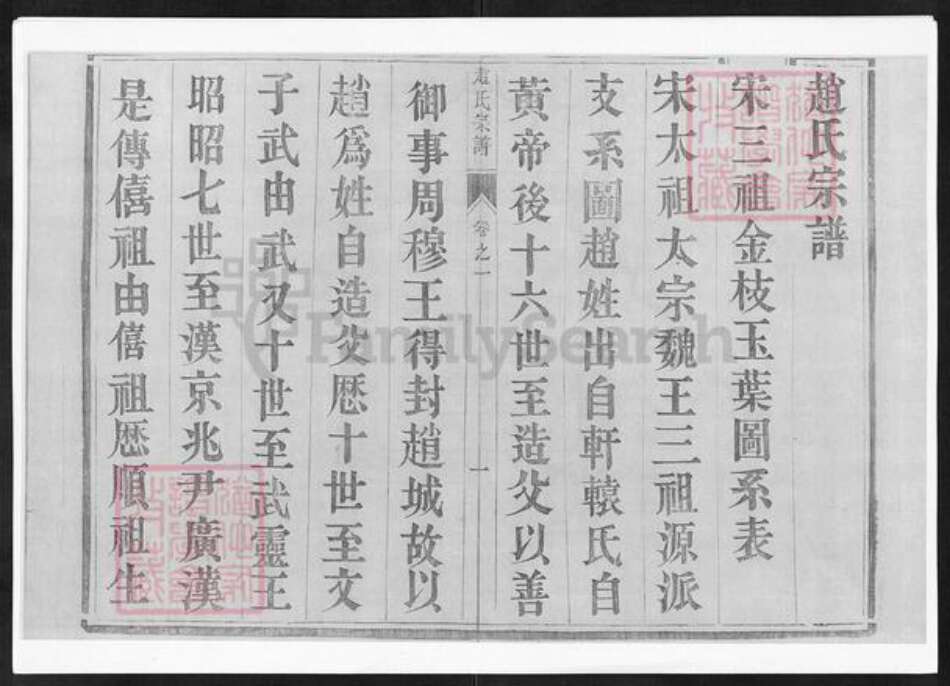 趙氏宗譜
宋三祖金枝玉葉圖系表
宋太祖太宗魏王三祖源派
支系圖趙姓出自軒轅氏自
黃帝後十六世至造父以善
趙氏宗譜 卷之一 一
御事周穆王得封趙城故以
趙爲姓自造父厯十世至文
子武由武又十世至武靈王
昭昭七世至漢京兆尹廣漢
是傳僖祖由僖祖厯順祖生
FamilySearch